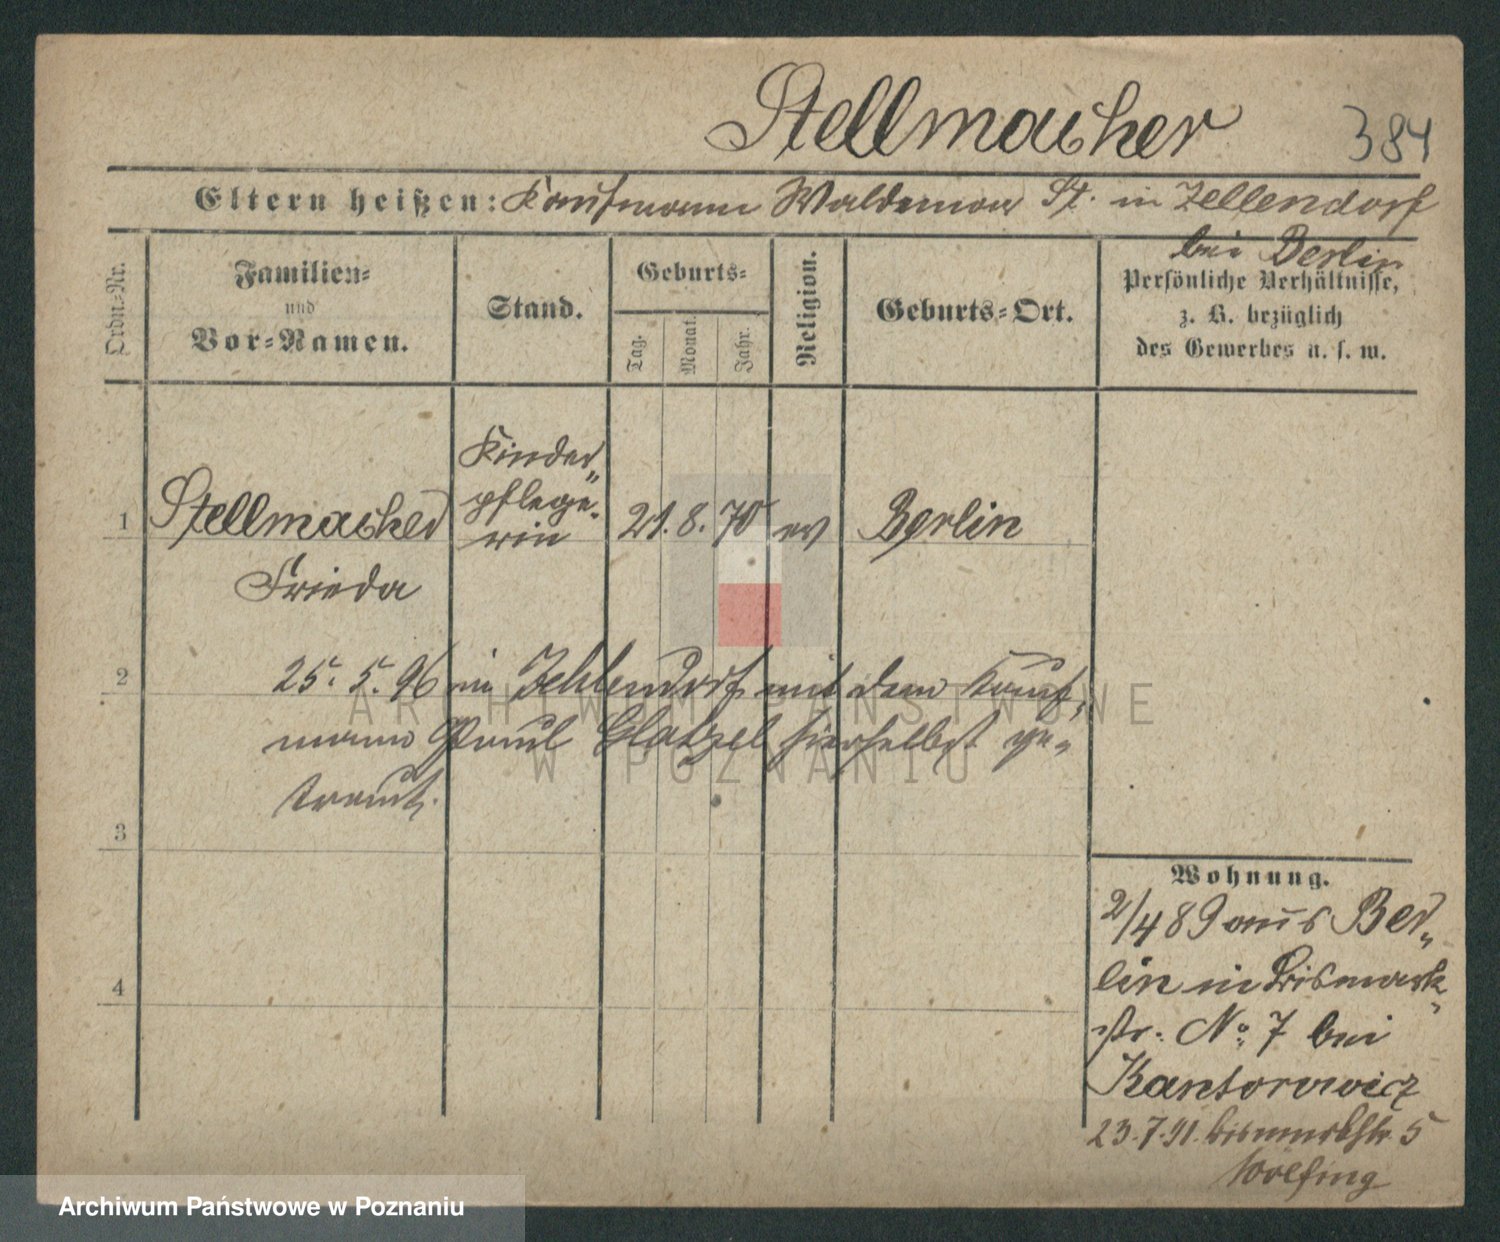 Stellmacher 384
Eltern heißen: Kaufmann Waldemar St. in Zellendorf
bei Berlin
Ordn.=Nr.
Familien=
und
Vor=Namen.
Stand.
Geburts=
Tag.
Monat.
Jahr.
Religion.
Geburts=Ort.
Persönliche Verhältnisse,
z. B. bezüglich
des Gewerbes u. s. w.
Kinder"
pflege-
rin
1 Stellmacher 21. 8. 70 ev Berlin
Frieda
2 25. 5. 96 in Zehlendorf mit dem Kauf,
mann Paul Glatzel hierselbst ge-
traut.
3
4
Wohnung.
2/4 89 aus Ber„
lin in Bismark„
str. No 7 bei
Kantorowicz
23.7.91. Bismarkstr. 5
Wölfing
ARCHIWUM PAŃSTWOWE
W POZNANIU
Archiwum Państwowe w Poznaniu